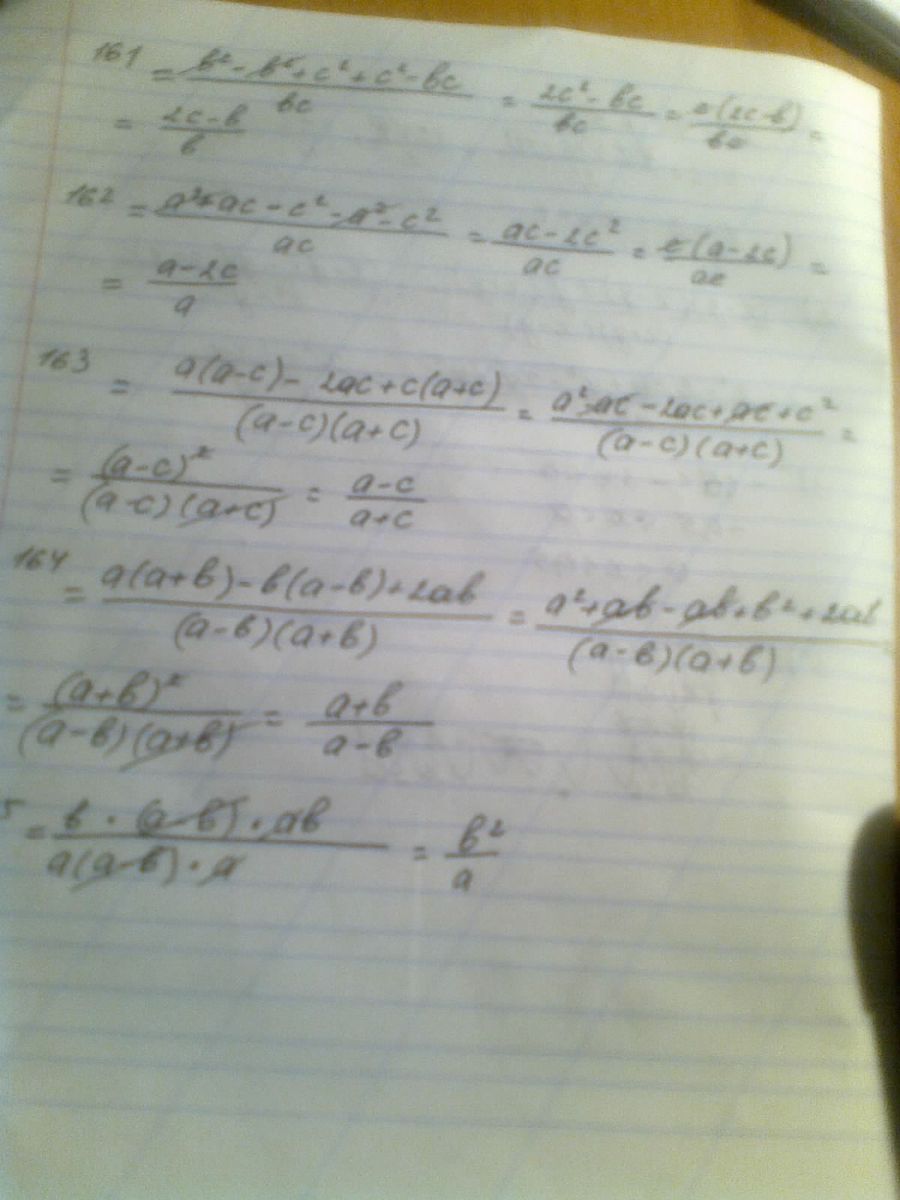 161 = (b² - b² + c² + c² - bc)/bc = (2c² - bc)/bc = c(2c-b)/bc =
= (2c-b)/b
162 = (a² + ac - c² - a² - c²)/ac = (ac - 2c²)/ac = c(a-2c)/ac =
= (a-2c)/a
163 = (a(a-c) - 2ac + c(a+c))/((a-c)(a+c)) = (a² - ac - 2ac + ac + c²)/((a-c)(a+c)) =
= (a-c)²/((a-c)(a+c)) = (a-c)/(a+c)
164 = (a(a+b) - b(a-b) + 2ab)/((a-b)(a+b)) = (a² + ab - ab + b² + 2ab)/((a-b)(a+b))
= (a+b)²/((a-b)(a+b)) = (a+b)/(a-b)
5 = (b · (a-b) · ab)/(a(a-b) · a) = b²/a